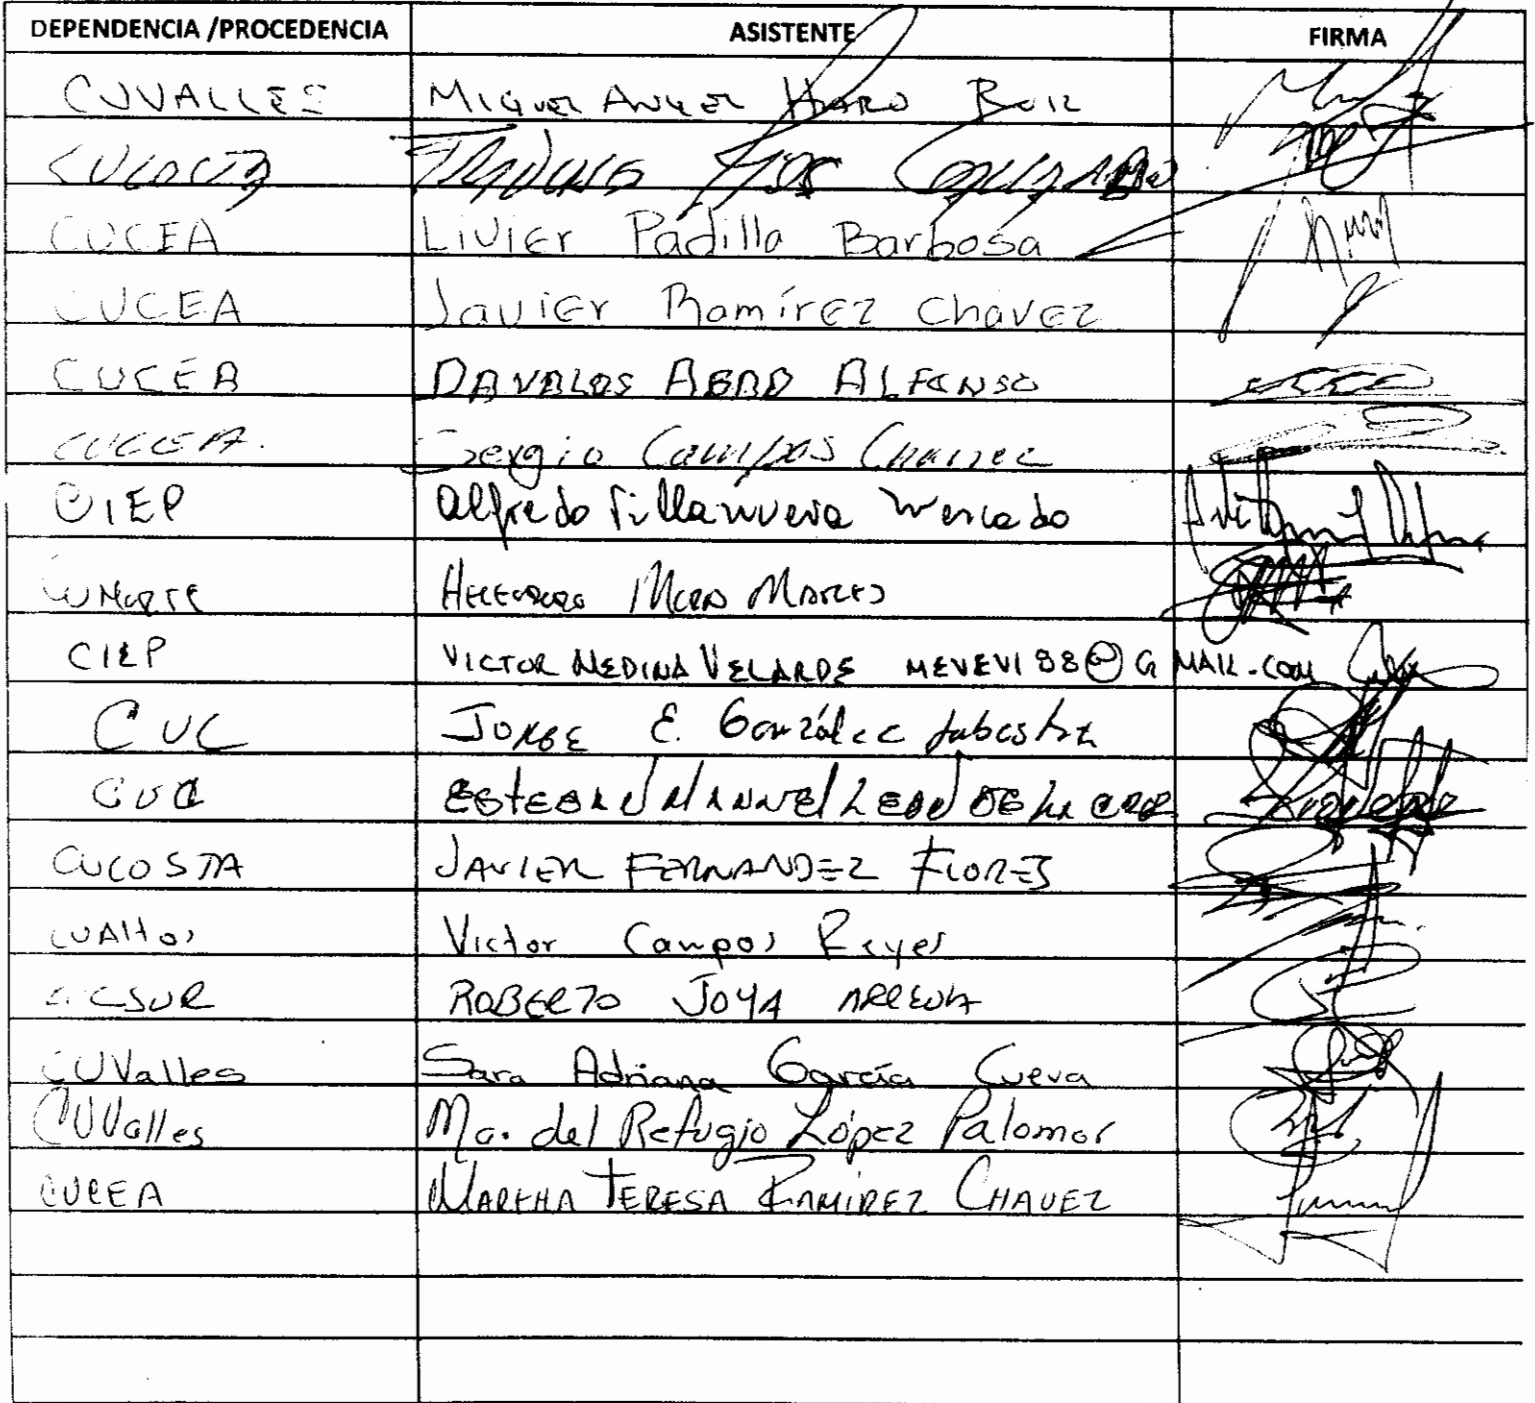 DEPENDENCIA /PROCEDENCIA ASISTENTE FIRMA
CUVALLES MIGUEL ANGEL HARO RUIZ
CUCEA Livier Padilla Barbosa
CUCEA Javier Ramírez Chavez
CUCEA DAVALOS ABAD ALFONSO
CUCEA. Sergio Campos
CIEP Alfredo Villanueva Mercado
CUNORTE MORA
CIEP VICTOR MEDINA VELARDE MEVEVI88@GMAIL.COM
CUC JORGE E. González
CUC ESTEBAN MANUEL LEON DE LA CRUZ
CUCOSTA JAVIER FERNANDEZ FLORES
CUAltos Victor Campos Reyes
CUCSUR ROBERTO JOYA ARREOLA
CUValles Sara Adriana García Cueva
CUValles Ma. del Refugio López Palomar
CUCEA MARTHA TERESA RAMIREZ CHAVEZ